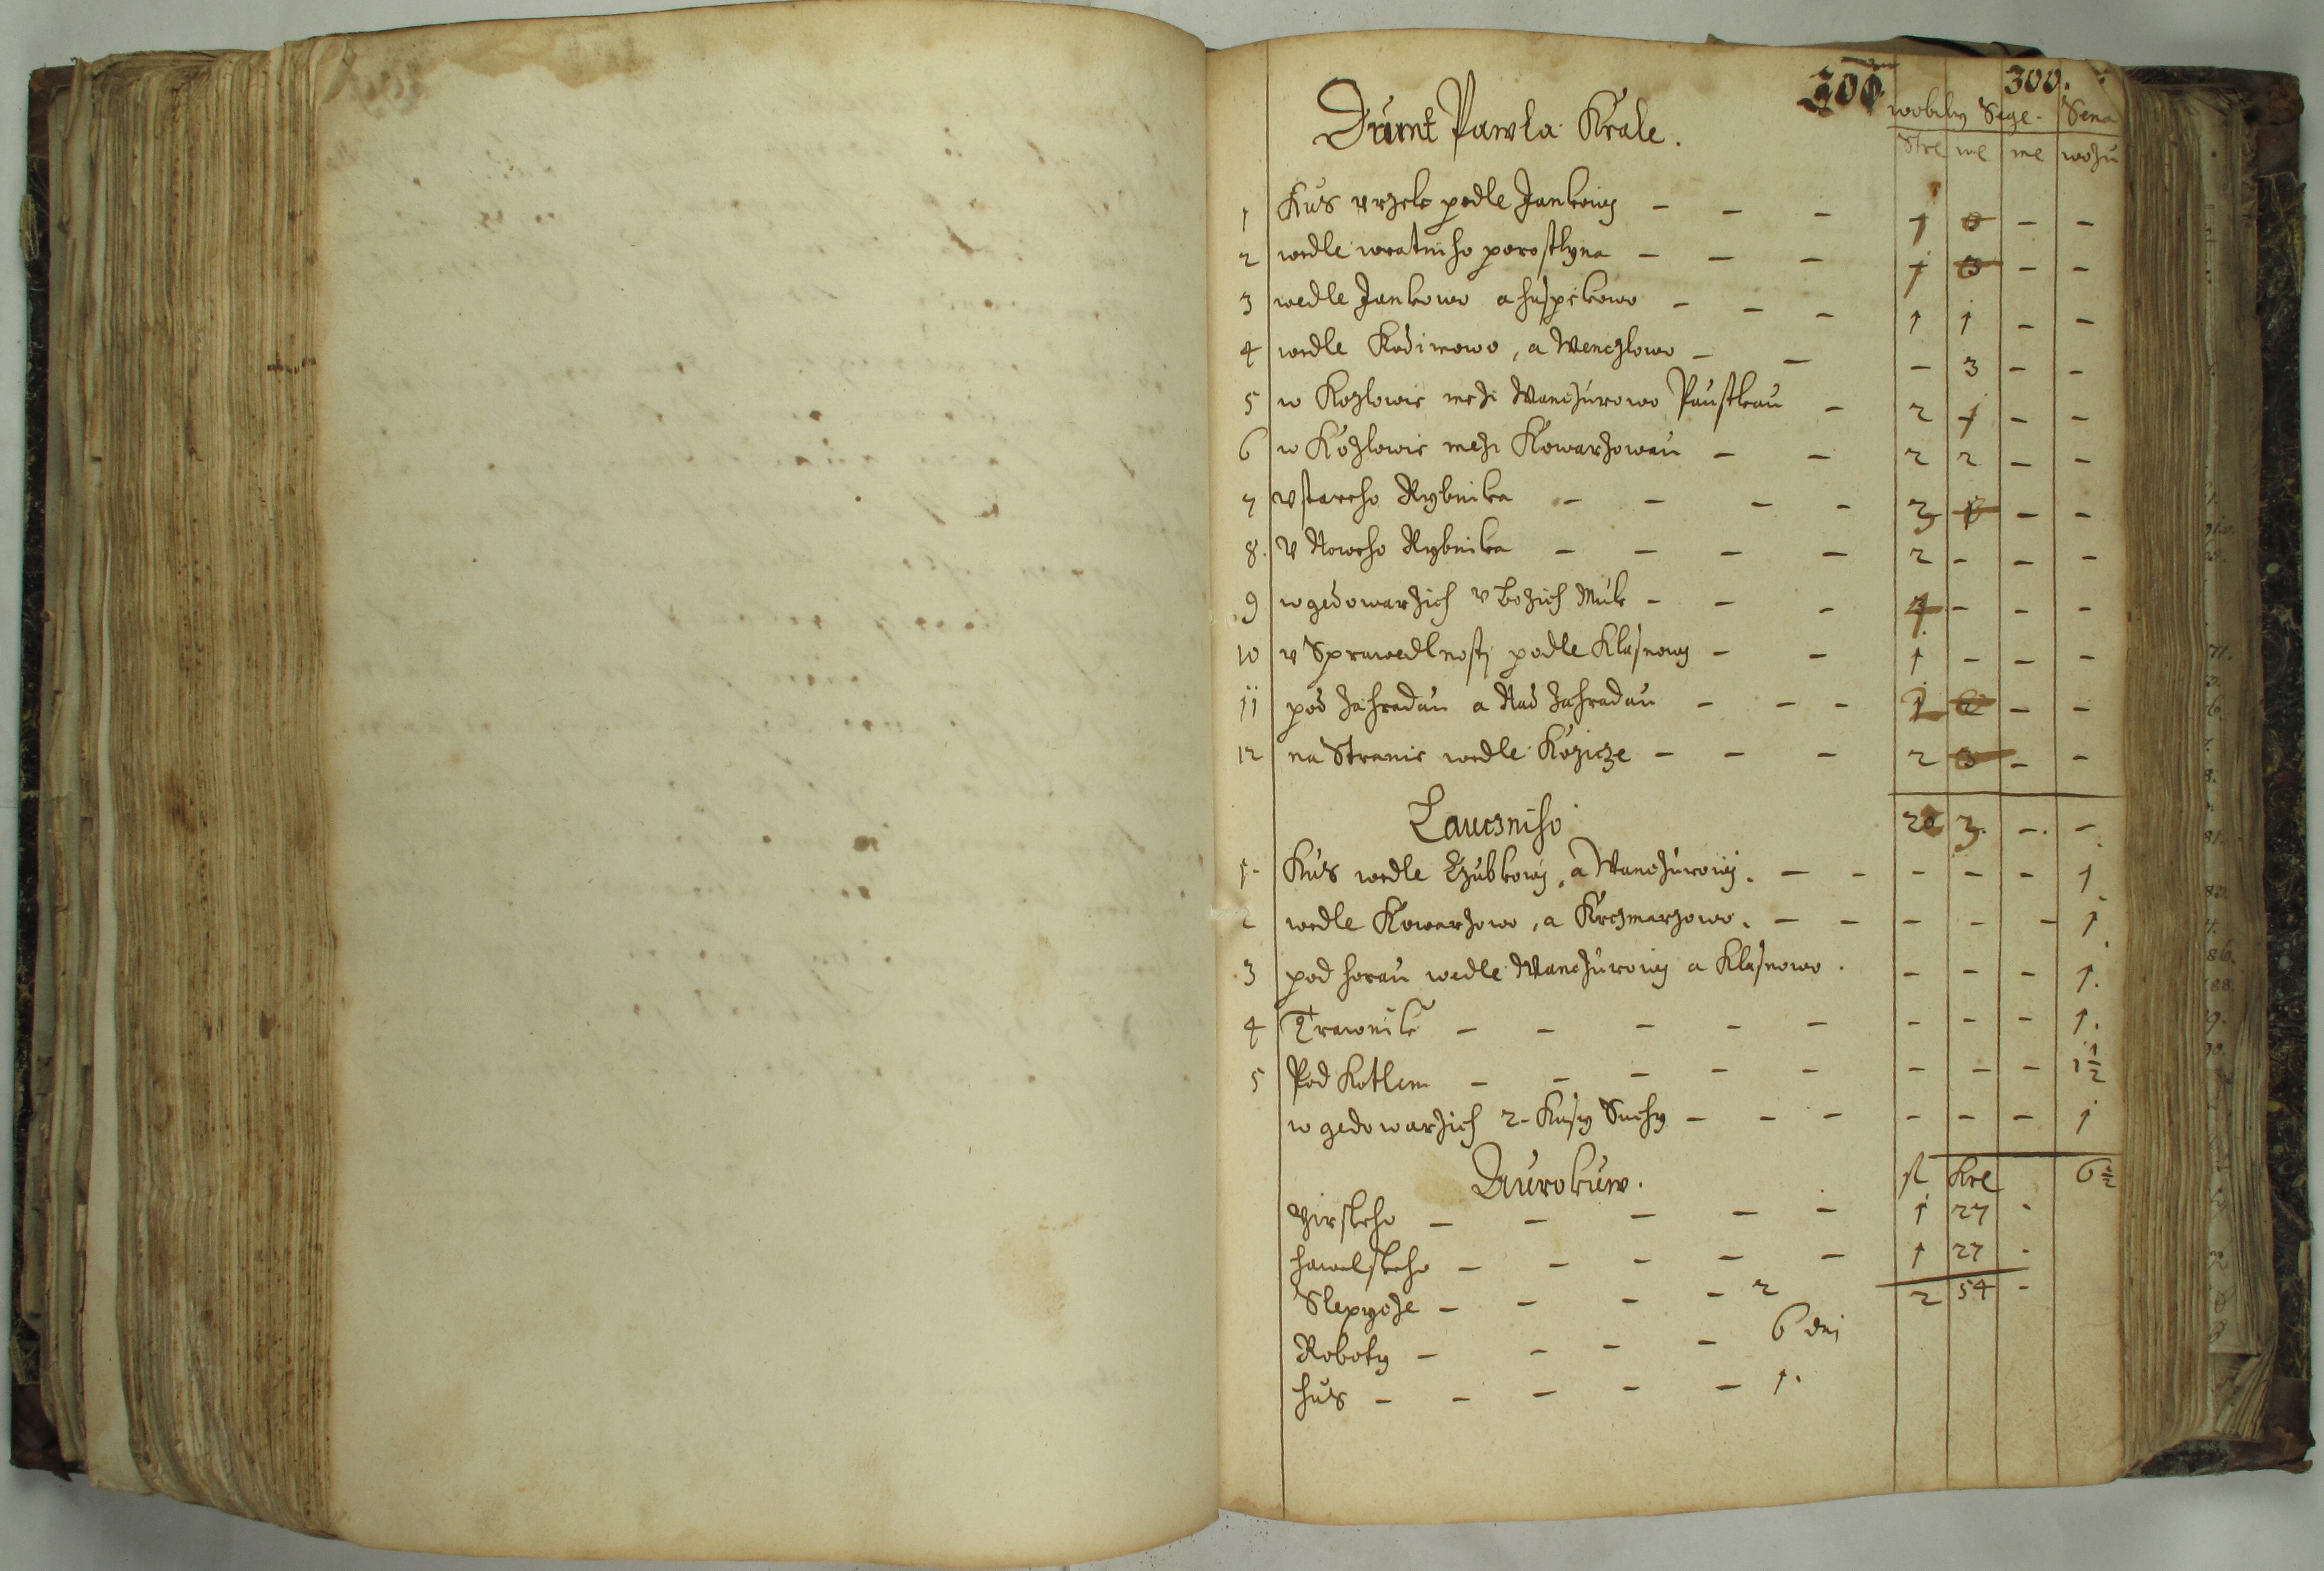 300 300.
Grunt Pawla Krale. wobily Sege- Sena
Stre me me wozu
1 Kus u rzek podle Jankowy — — — 1 — —
2 wedle wratniho porostlyna — — — 1 — —
3 wedle Jankowo a huspekowo — — — 1 1 — —
4 wedle Kodimowo, a Wenczlowo — — — 3 — —
5 w Kozlowie mezi Wanczurowo Paustkau — 2 1 — —
6 w Kozlowie mezi Kowarzowau — — 2 2 — —
7 v stareho Rybnika — — — — 3 — —
8. V Noweho Rybnika — — — — 2 — — —
9 w gedowarzich v bozich Muk — — — — — —
10 v Sprawedlnosti podle Klasnowy — — 1 — — —
11 pod Zahradau a Nad Zahradau — — — 1 — —
12 na Stranie wedle Kozicze — — — 2 — —
Lauczniho 20 3. —. —
1- Kus wedle Czubkowy, a Wanczurowy. — — — — — 1
2 wedle Kowarzowo, a Krczmarzowo. — — — — — 1
3 pod horau wedle Wanczurowy a Klasnowo. — — — 1.
4 Trawnik — — — — — — — — 1.
5 Pod Kotlem — — — — — — — — 1 1/2
w gedowarzich 2- Kusy Suchy — — — — — — 1
Aurokuw. fl Kre 6 1/2
Girskeho — — — — — 1 27 -
hawelskeho — — — — — 1 27 -
Slepycze — — — — 2 2 54 -
Roboty — — — — 6 dni
hus — — — — — 1.